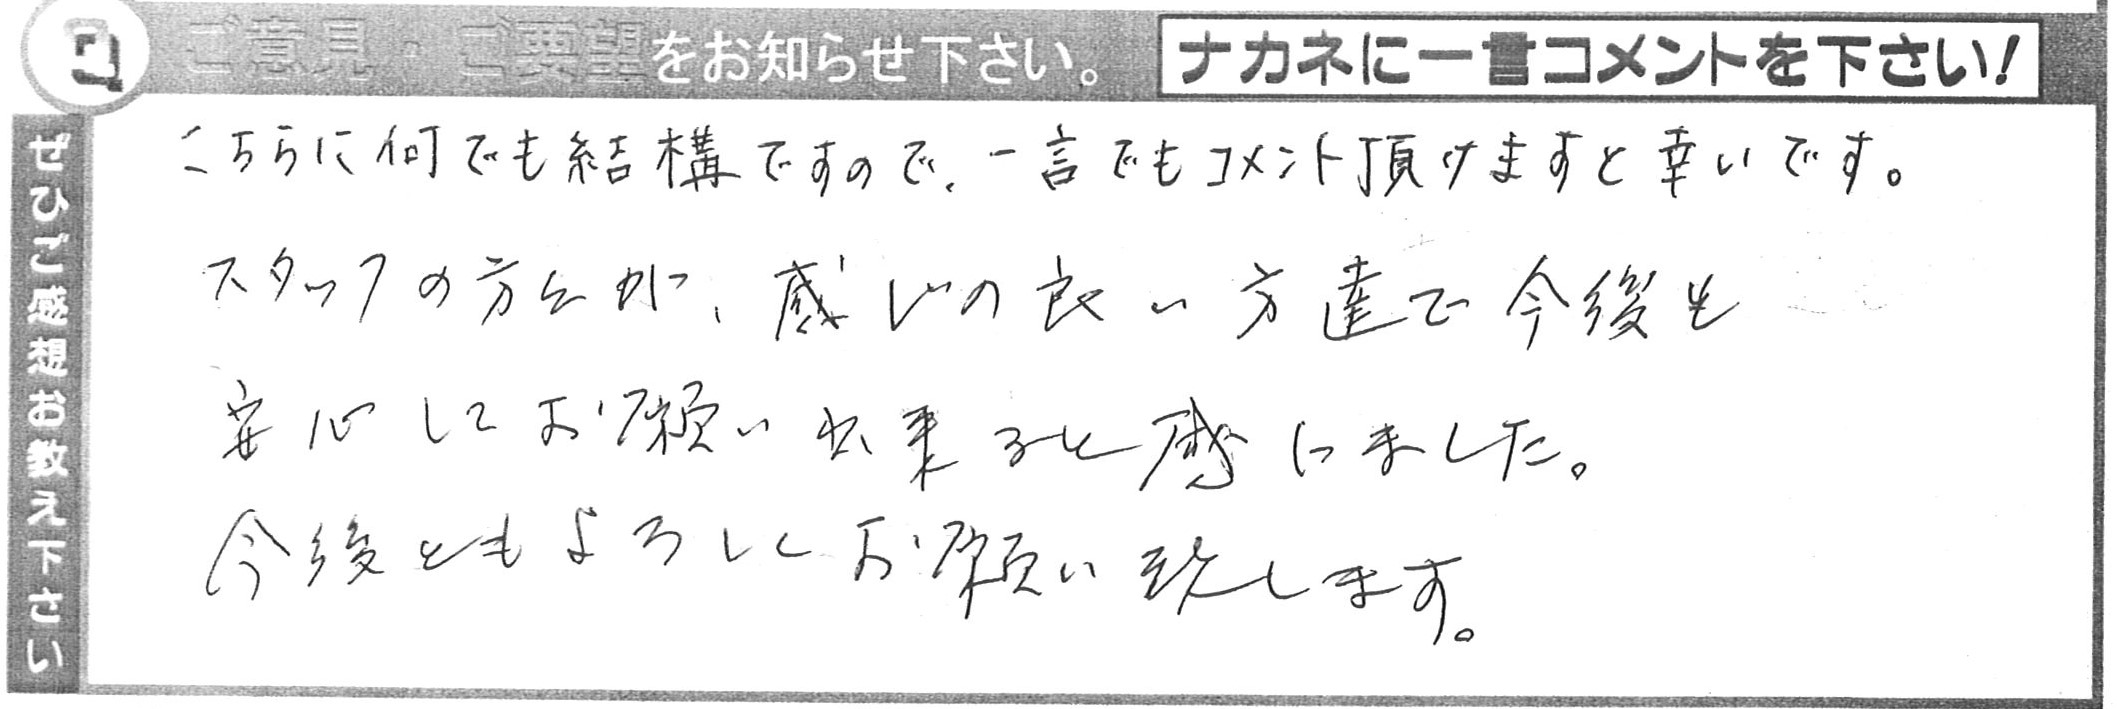 ご意見・ご要望をお知らせ下さい。
ナカネに一言コメントを下さい!
ぜひご感想お教え下さい
こちらに何でも結構ですので、一言でもコメント頂けますと幸いです。
スタッフの方々が、感じの良い方達で今後も
安心してお願い出来ると感じました。
今後ともよろしくお願い致します。